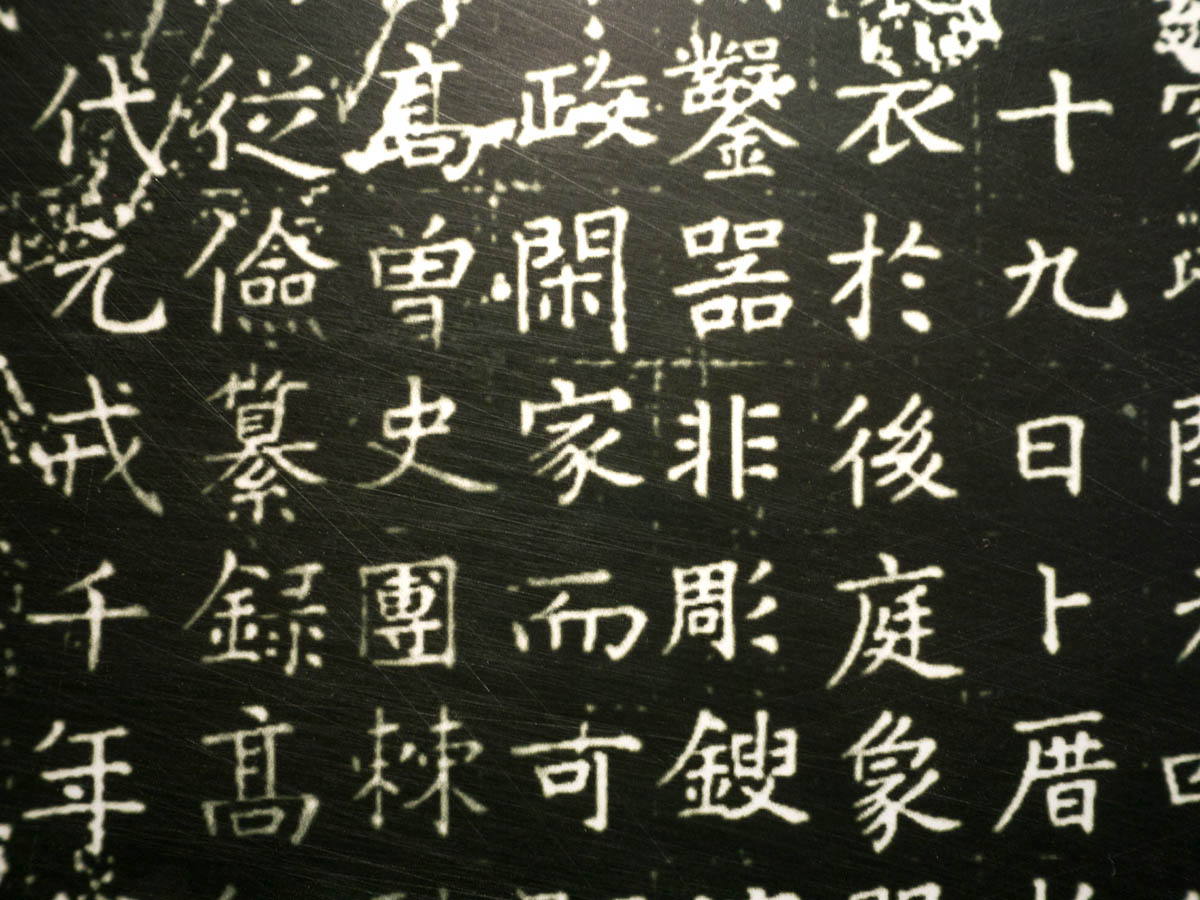 十九日卜厝
衣於後庭象
鑿器非彫鎪
政閑家而可
髙曽史團棘
從儉纂録髙
代元戒千年